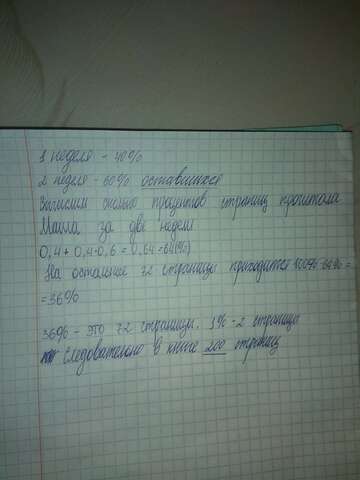 1 неделя - 40%
2 неделя - 60% оставшихся
Вычислим сколько процентов страниц прочитала
Маша за две недели
0,4 + 0,4·0,6 = 0,64 = 64(%)
На остальные 72 страницы приходится 100%-64% =
= 36%
36% - это 72 страницы. 1% - 2 страницы
Следовательно в книге 200 страниц